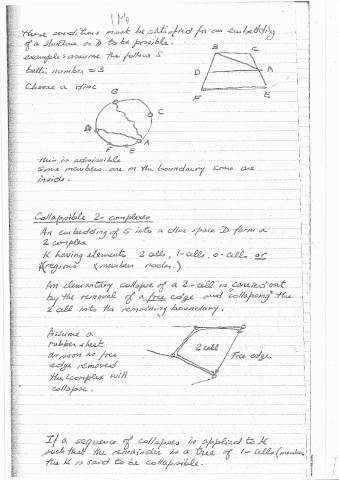 These conditions must be satisfied for an embedding
of a structure in D to be possible.
example: assume the follows S
betti number = 3
Choose a disc
B
C
D
A
F
E
B
C
D
A
F
E
this is admissible
some members are in the boundary some are
inside.
Collapsible 2-complexes
An embedding of S into a disc space D form a
2 complex
K having elements 2 cells, 1-cells, 0-cells or
(regions members nodes.)
An elementary collapse of a 2-cell is carried out
by the removal of a free edge and "collapsing" the
2 cell into the remaining boundary.
Assume a
rubber sheet
as soon as free
edge removed
the 2 complex will
collapse.
2 cell
Free edge.
If a sequence of collapses is applied to K
such that the remainder is a tree of 1-cells (members
the K is said to be collapsible.